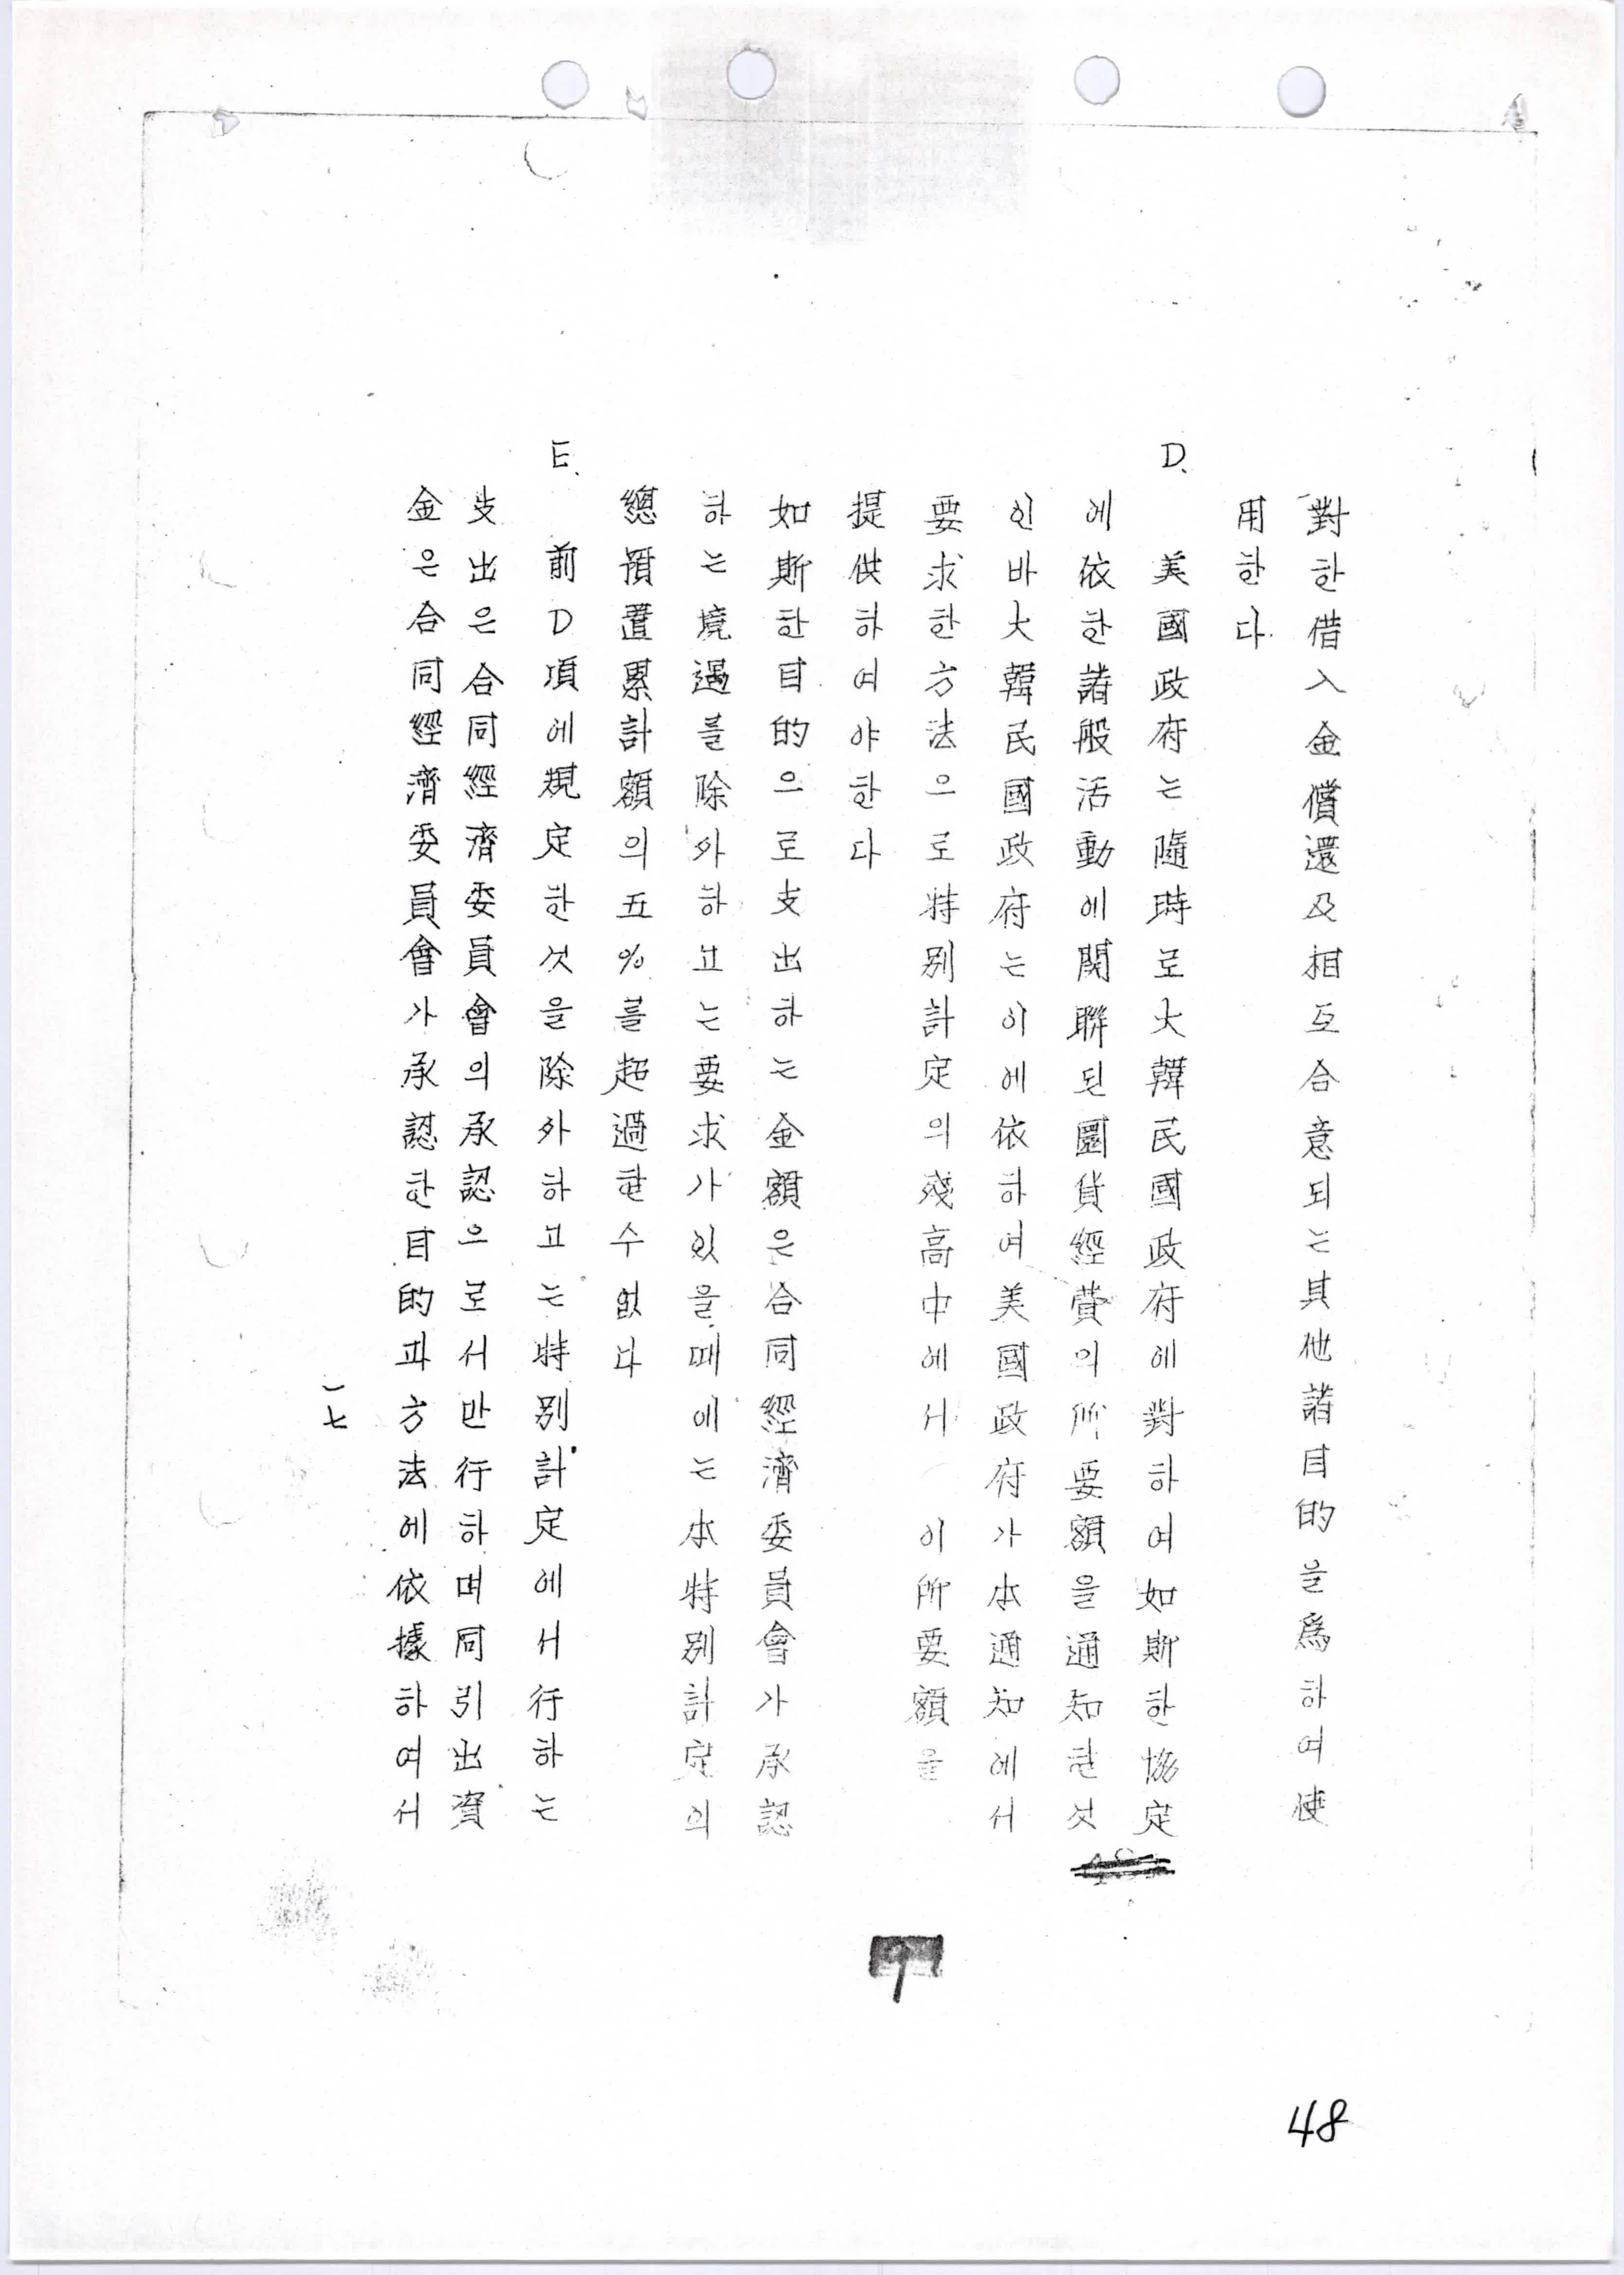 對한借入金償還及相互合意되는其他諸目的을爲하여使
用한다.
D. 美國政府는隨時로大韓民國政府에對하여如斯한協定
에依한諸般活動에関聯된圜貨經費의所要額을通知할것
인바大韓民國政府는이에依하여美國政府가本通知에서
要求한方法으로特別計定의殘高中에서 이所要額을
提供하여야한다
如斯한目的으로支出하는金額은合同經濟委員會가承認
하는境遇를除外하고는要求가있을때에는本特別計定의
總預置累計額의五%를超過할수없다
E. 前D項에規定한것을除外하고는特別計定에서行하는
支出은合同經濟委員會의承認으로서만行하며同引出資
金은合同經濟委員會가承認한目的과方法에依據하여서
一七
48